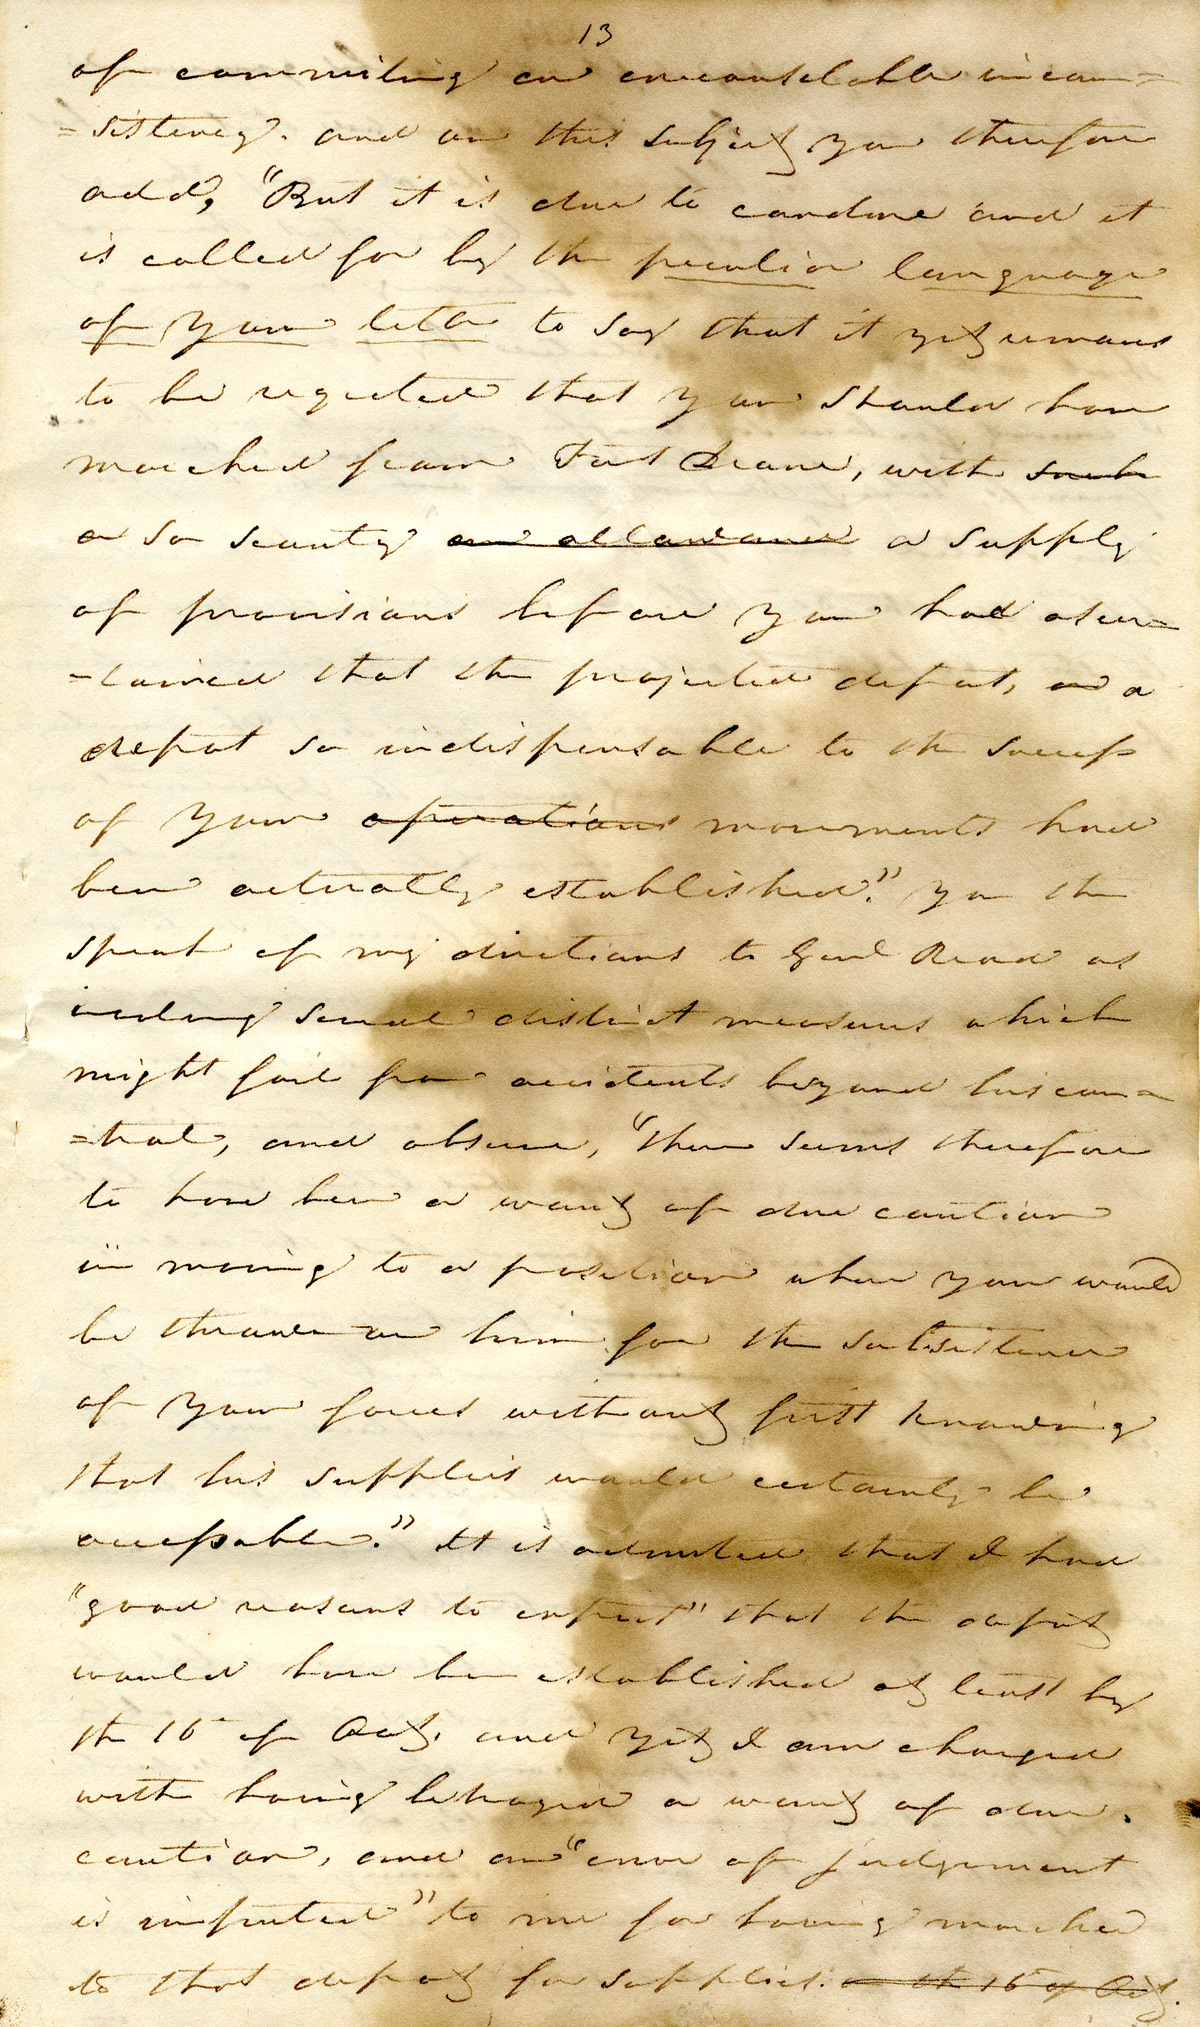 13
of commiting an irreconsilable incon=
=sistency. and on this subject you therefore
add, "But it is due to candour and it
is called for by the peculiar language
of your letter to say that it yet remains
to be regretted that you should have
marched from Fort Drane, with such
a so scanty an allowance a supply
of provisions before you had ascer=
=tained that the projected depot, and a
depot so indispensable to the success
of your operations movements had
been actually established." You then
speak of my directions to Genl Read as
involving several distinct measures which
might fail from accidents beyond his con=
=trol, and observe, "there seems therefore
to have been a want of due caution
in moving to a position where you would
be thrown on him for the subsistence
of your forces without first knowing
that his supplies would certainly be
accessable." It is admitted that I had
"good reasons to expect" that the depot
would have been established at least by
the 16th of Oct. and yet I am charged
with having betrayed a want of due
caution, and an "error of judgement
is imputed" to me for having marched
to that depot for supplies. the 16th of Oct.